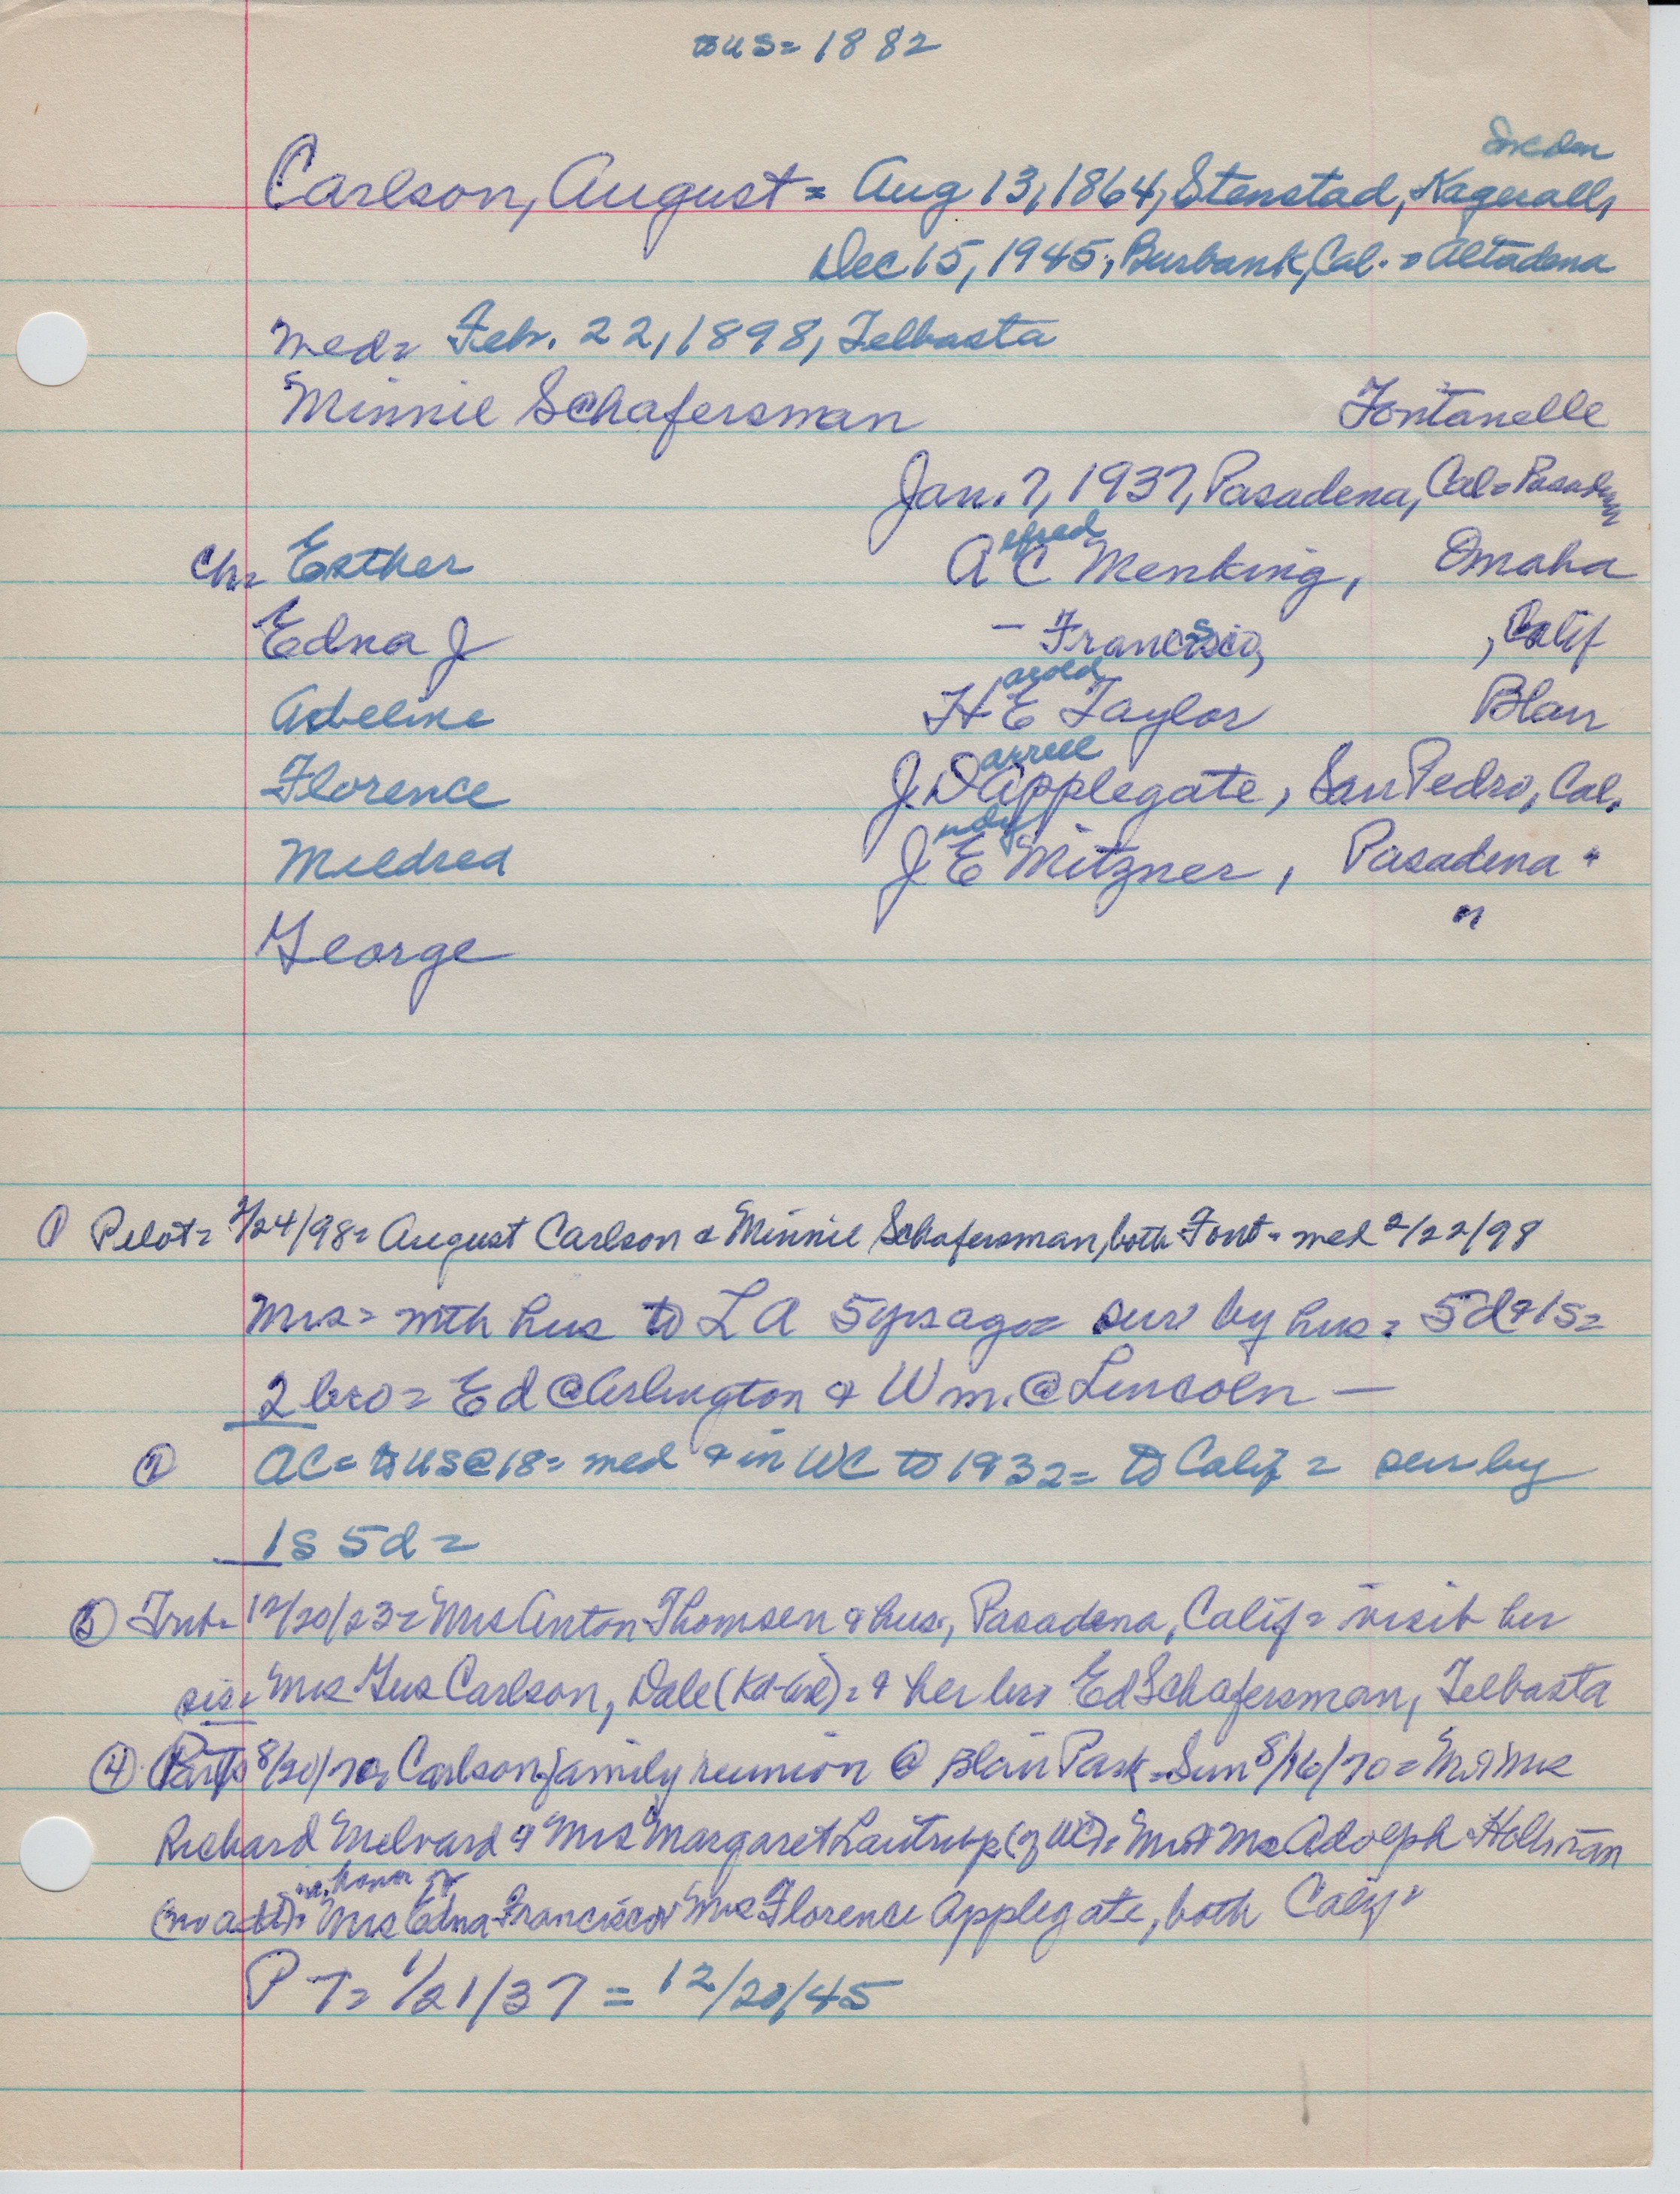 to US = 1882
Sweden
Carlson, August = Aug 13, 1864, Stenstad, Kageralls
Dec 15, 1945, Burbank, Cal. = Altadena
med= Febr. 22, 1898, Telbasta
Minnie Schafersman Fontanelle
Jan. 7, 1937, Pasadena, Cal = Pasadena
ch= Esther Alfred C Menking, Omaha
Edna J — Francisco, , Calif
Adeline Harold E Taylor Blair
Florence J. Darrell Applegate, San Pedro, Cal.
Mildred Judy E Mitzner, Pasadena "
George "
① Pilot= 2/24/98= August Carlson & Minnie Schafersman, both Font - med 2/22/98
Mrs= with hus to LA 5 yrs ago= sur by hus= 5d & 1s=
2 bro= Ed @ Arlington & Wm. @ Lincoln —
② AC= to US @ 18= med & in WC to 1932= to Calif = sur by
1s 5d =
③ Trib= 12/20/23= Mrs Anton Thomsen & hus, Pasadena, Calif= visit her
sis= Mrs Gus Carlson, Dale = & her bro Ed Schafersman, Telbasta
④ 8/20/70= Carlson family reunion @ Blair Park - Sun 8/16/70= Mr & Mrs
Richard Melvard & Mrs Margaret Lautrup (of WC)= Mr & Mrs Adolph Hollman
(no add)= in honor of Mrs Edna Francisco & Mrs Florence Applegate, both Calif
PT= 1/21/37 = 12/20/45